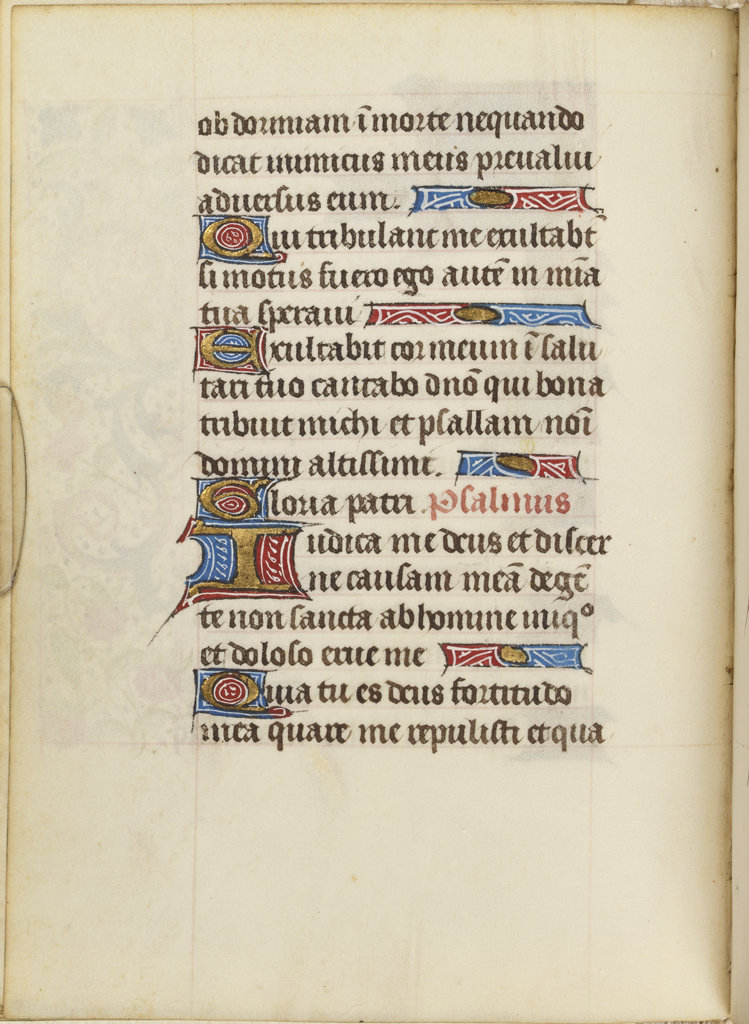 obdormiam ī morte nequando
dicat inimicus meus preualui
aduersus eum.
Qui tribulant me exultabt̄
si motus fuero ego autē in mīa
tua speraui
Exultabit cor meum ī salu
tari tuo cantabo dnō qui bona
tribuit michi et psallam noī
domini altissimi.
Gloria patri. Psalmus
Iudica me deus et discer
ne causam meā de gēt
te non sancta ab homine iniqº
et doloso erue me
Quia tu es deus fortitudo
mea quare me repulisti et qua